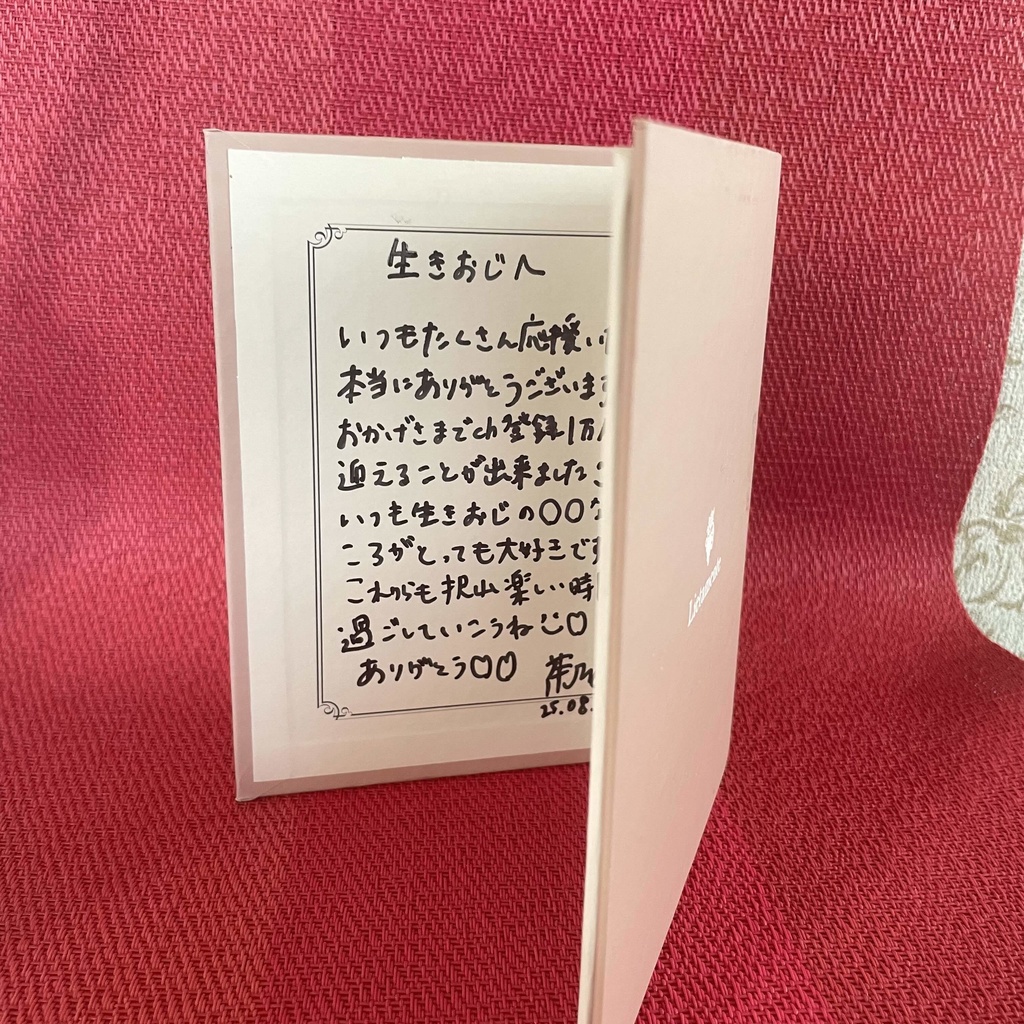 生きおじへ
いつもたくさん応援い
本当にありがとうございます
おかげさまでch登録1万
迎えることが出来ました
いつも生きおじの〇〇な
ころがとっても大好きです
これからも沢山楽しい時
過ごしていこうね
ありがとう
25.08.